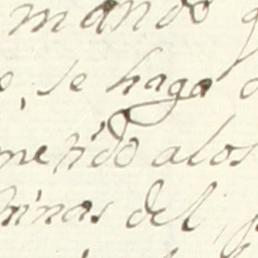 mando
, se haga
metido alos
minas del